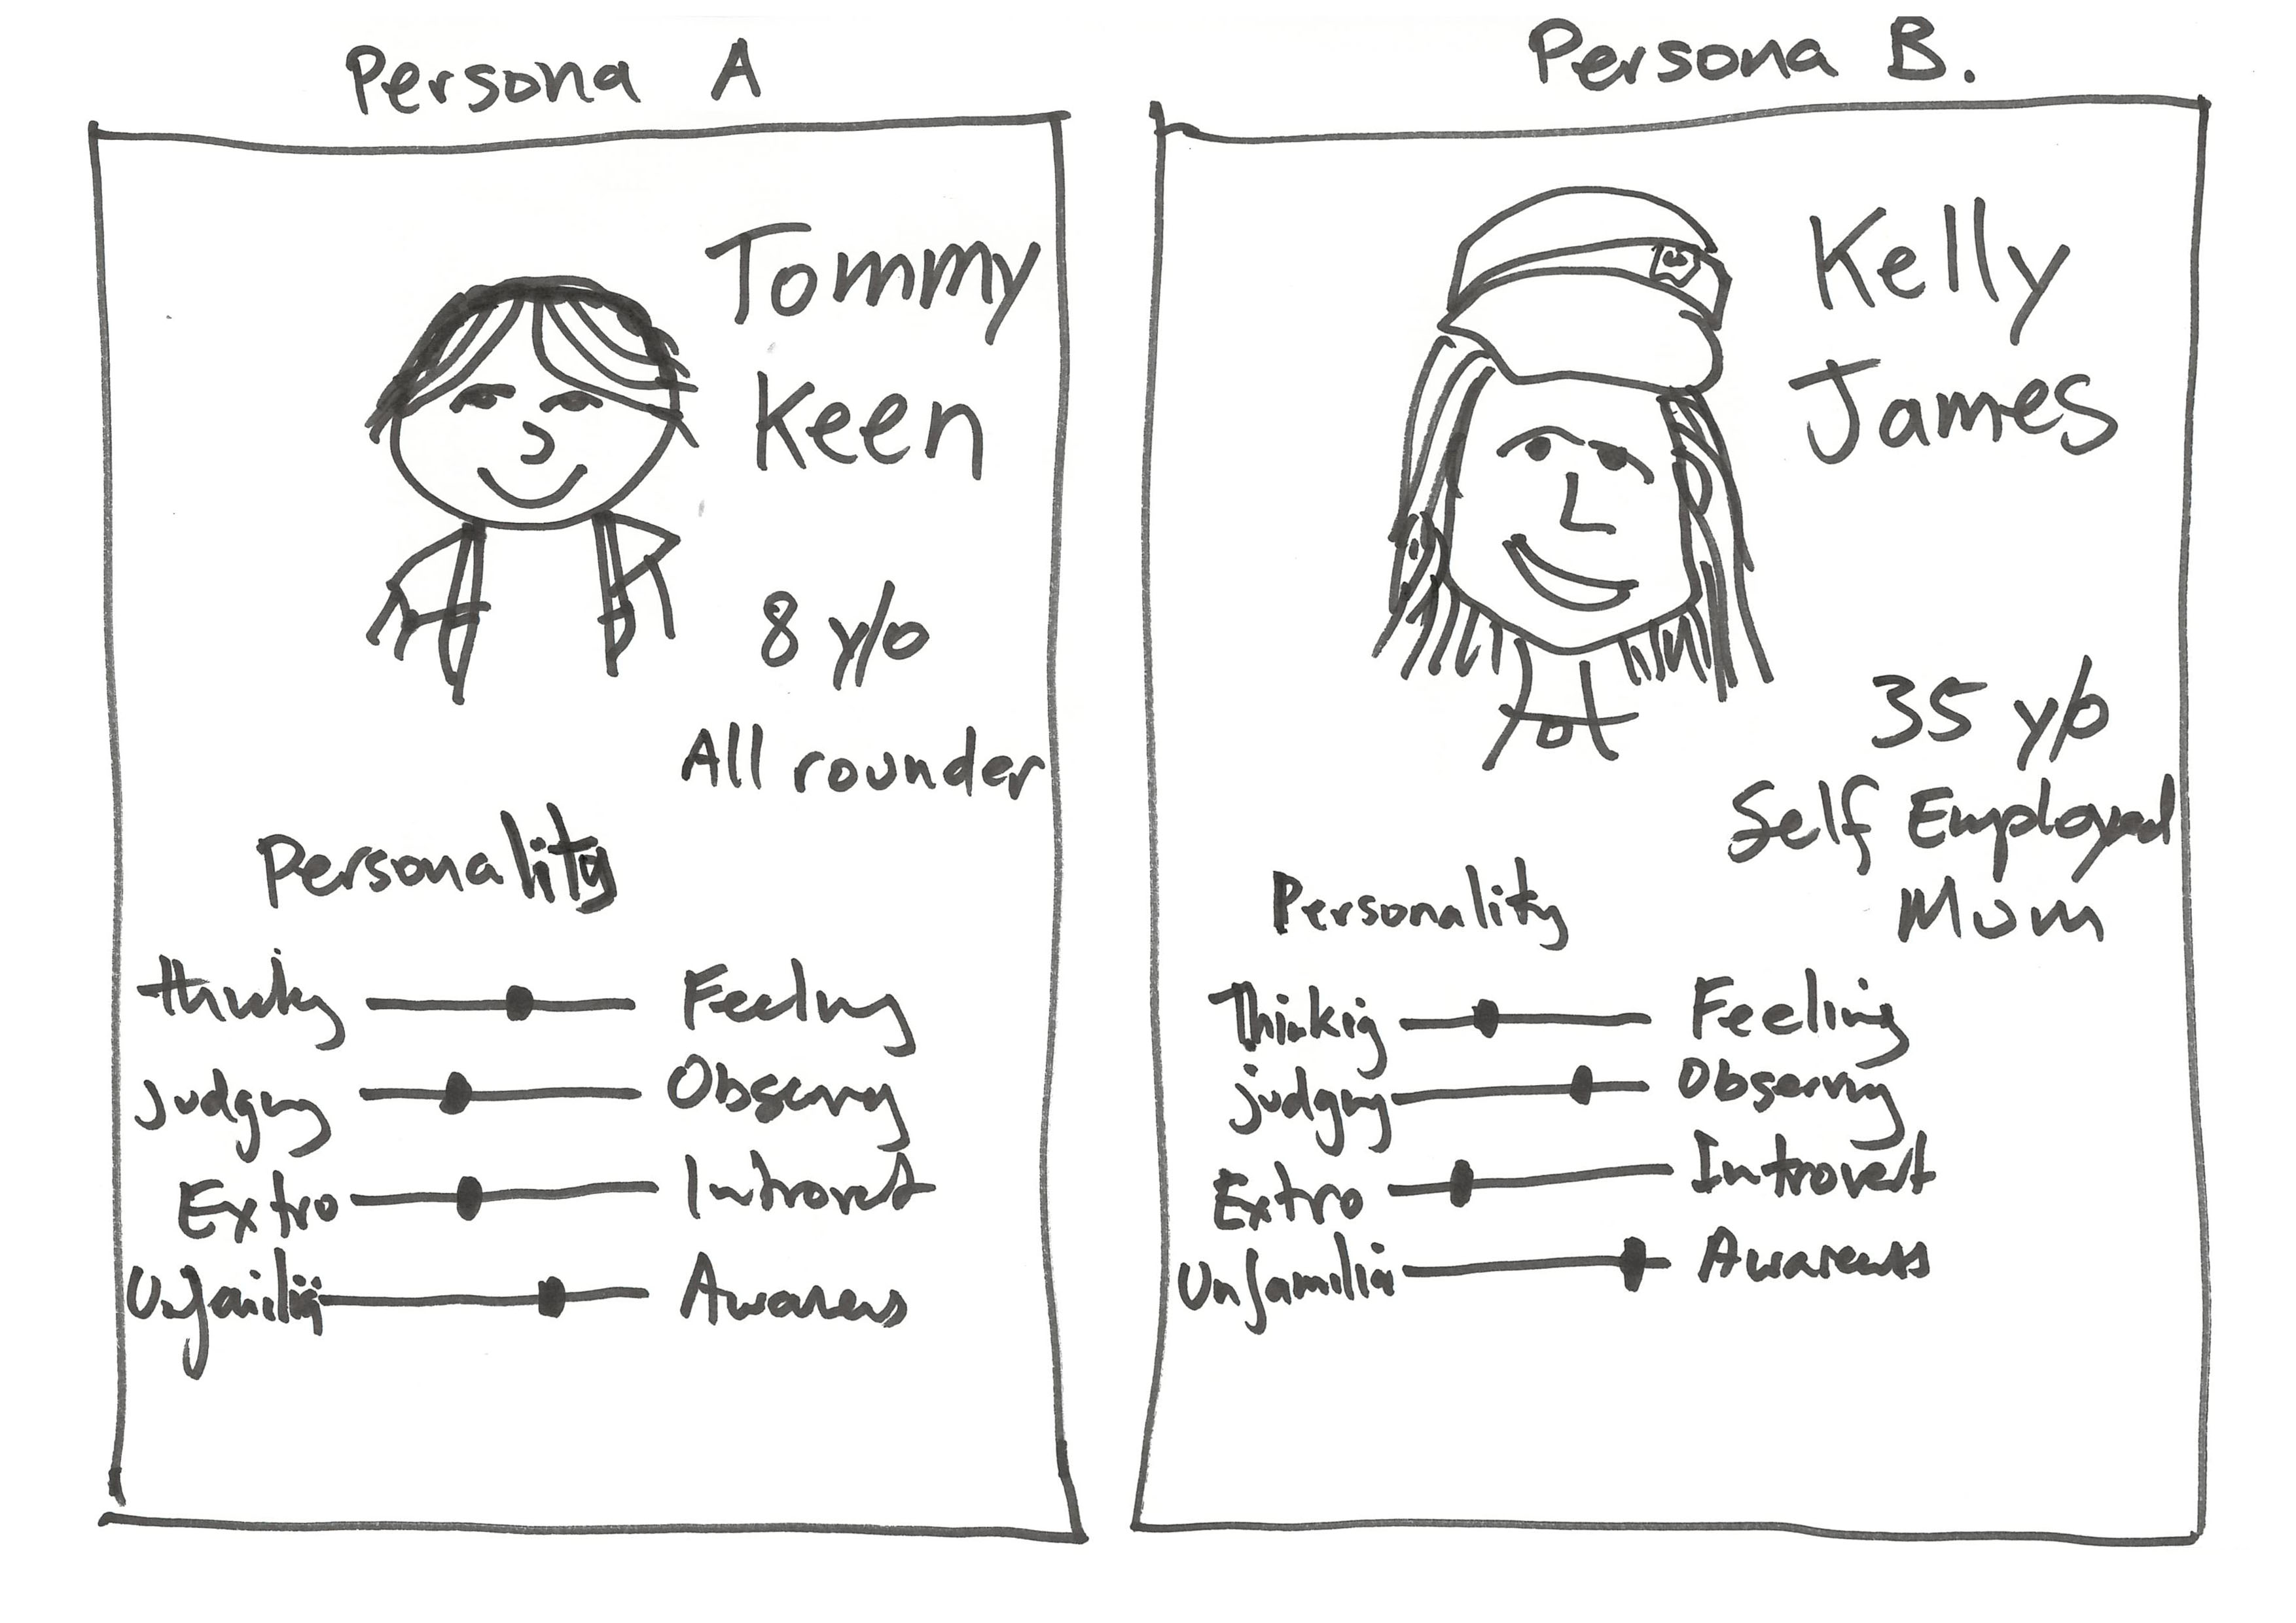 Persona A
Tommy
Keen
8 y/o
All rounder
Personality
thinkg Feeling
Judgng Observng
Extro Introvert
Unfamilir Awarens
Persona B.
Kelly
James
35 y/o
Self Employed
Mum
Personality
Thinkig Feeling
judgng Observng
Extro Introvert
Unfamiliar Awareness